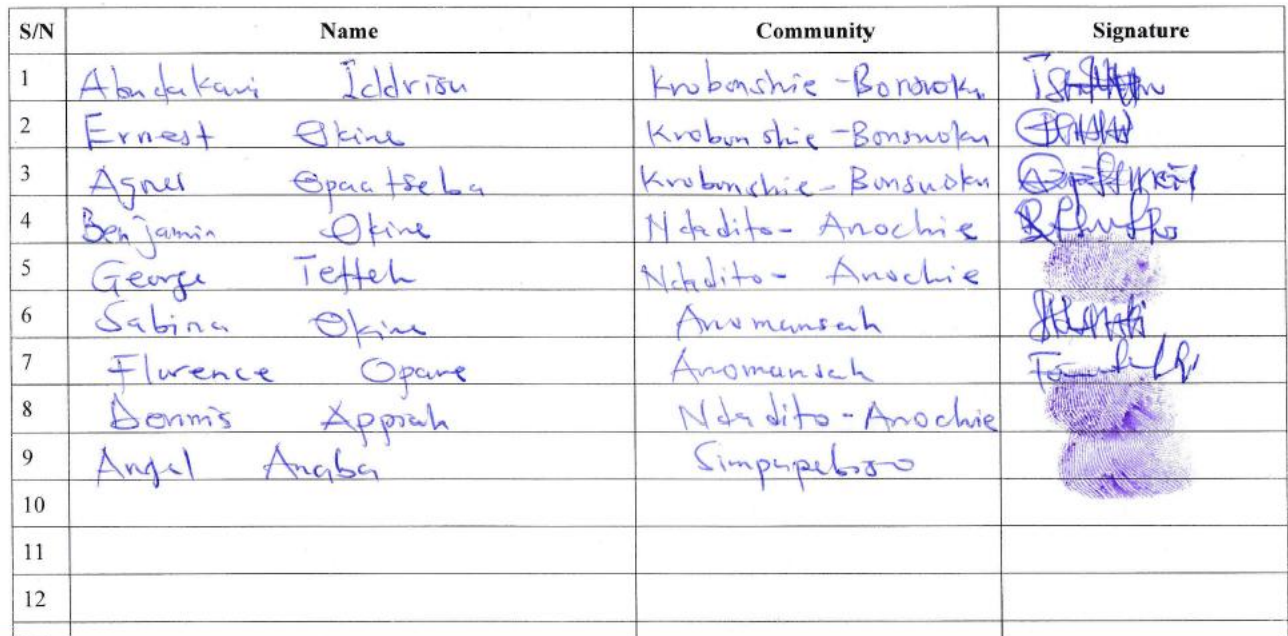 S/N Name Community Signature
1 Abudakari Iddrisu Krobonshie-Bonsuoku
2 Ernest Okine Krobonshie-Bonsuoku
3 Agnes Opaatseba Krobonshie-Bonsuoku
4 Benjamin Okine Ndadito-Anochie
5 George Tetteh Ndadito-Anochie
6 Sabina Okine Anomansah
7 Florence Opare Anomansah
8 Dennis Appiah Ndadito-Anochie
9 Angel Anaba
10
11
12